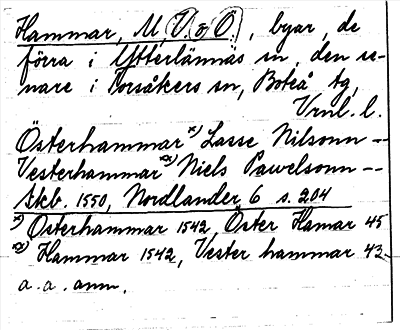 Hammar, M, V. & Ö., byar, de
förra i Ytterlännäs sn, den se-
nare i Torsåkers sn, Boteå tg,
Vrnl. l.
Österhammar x) Lasse Nilsonn --
Vesterhammar xx) Niels Pawelsonn --
Skb. 1550, Nordlander 6 s. 204
x) Österhammar 1542, Örter Hamar 45
xx) Hammar 1542, Vester hammar 43
a. a. anm.